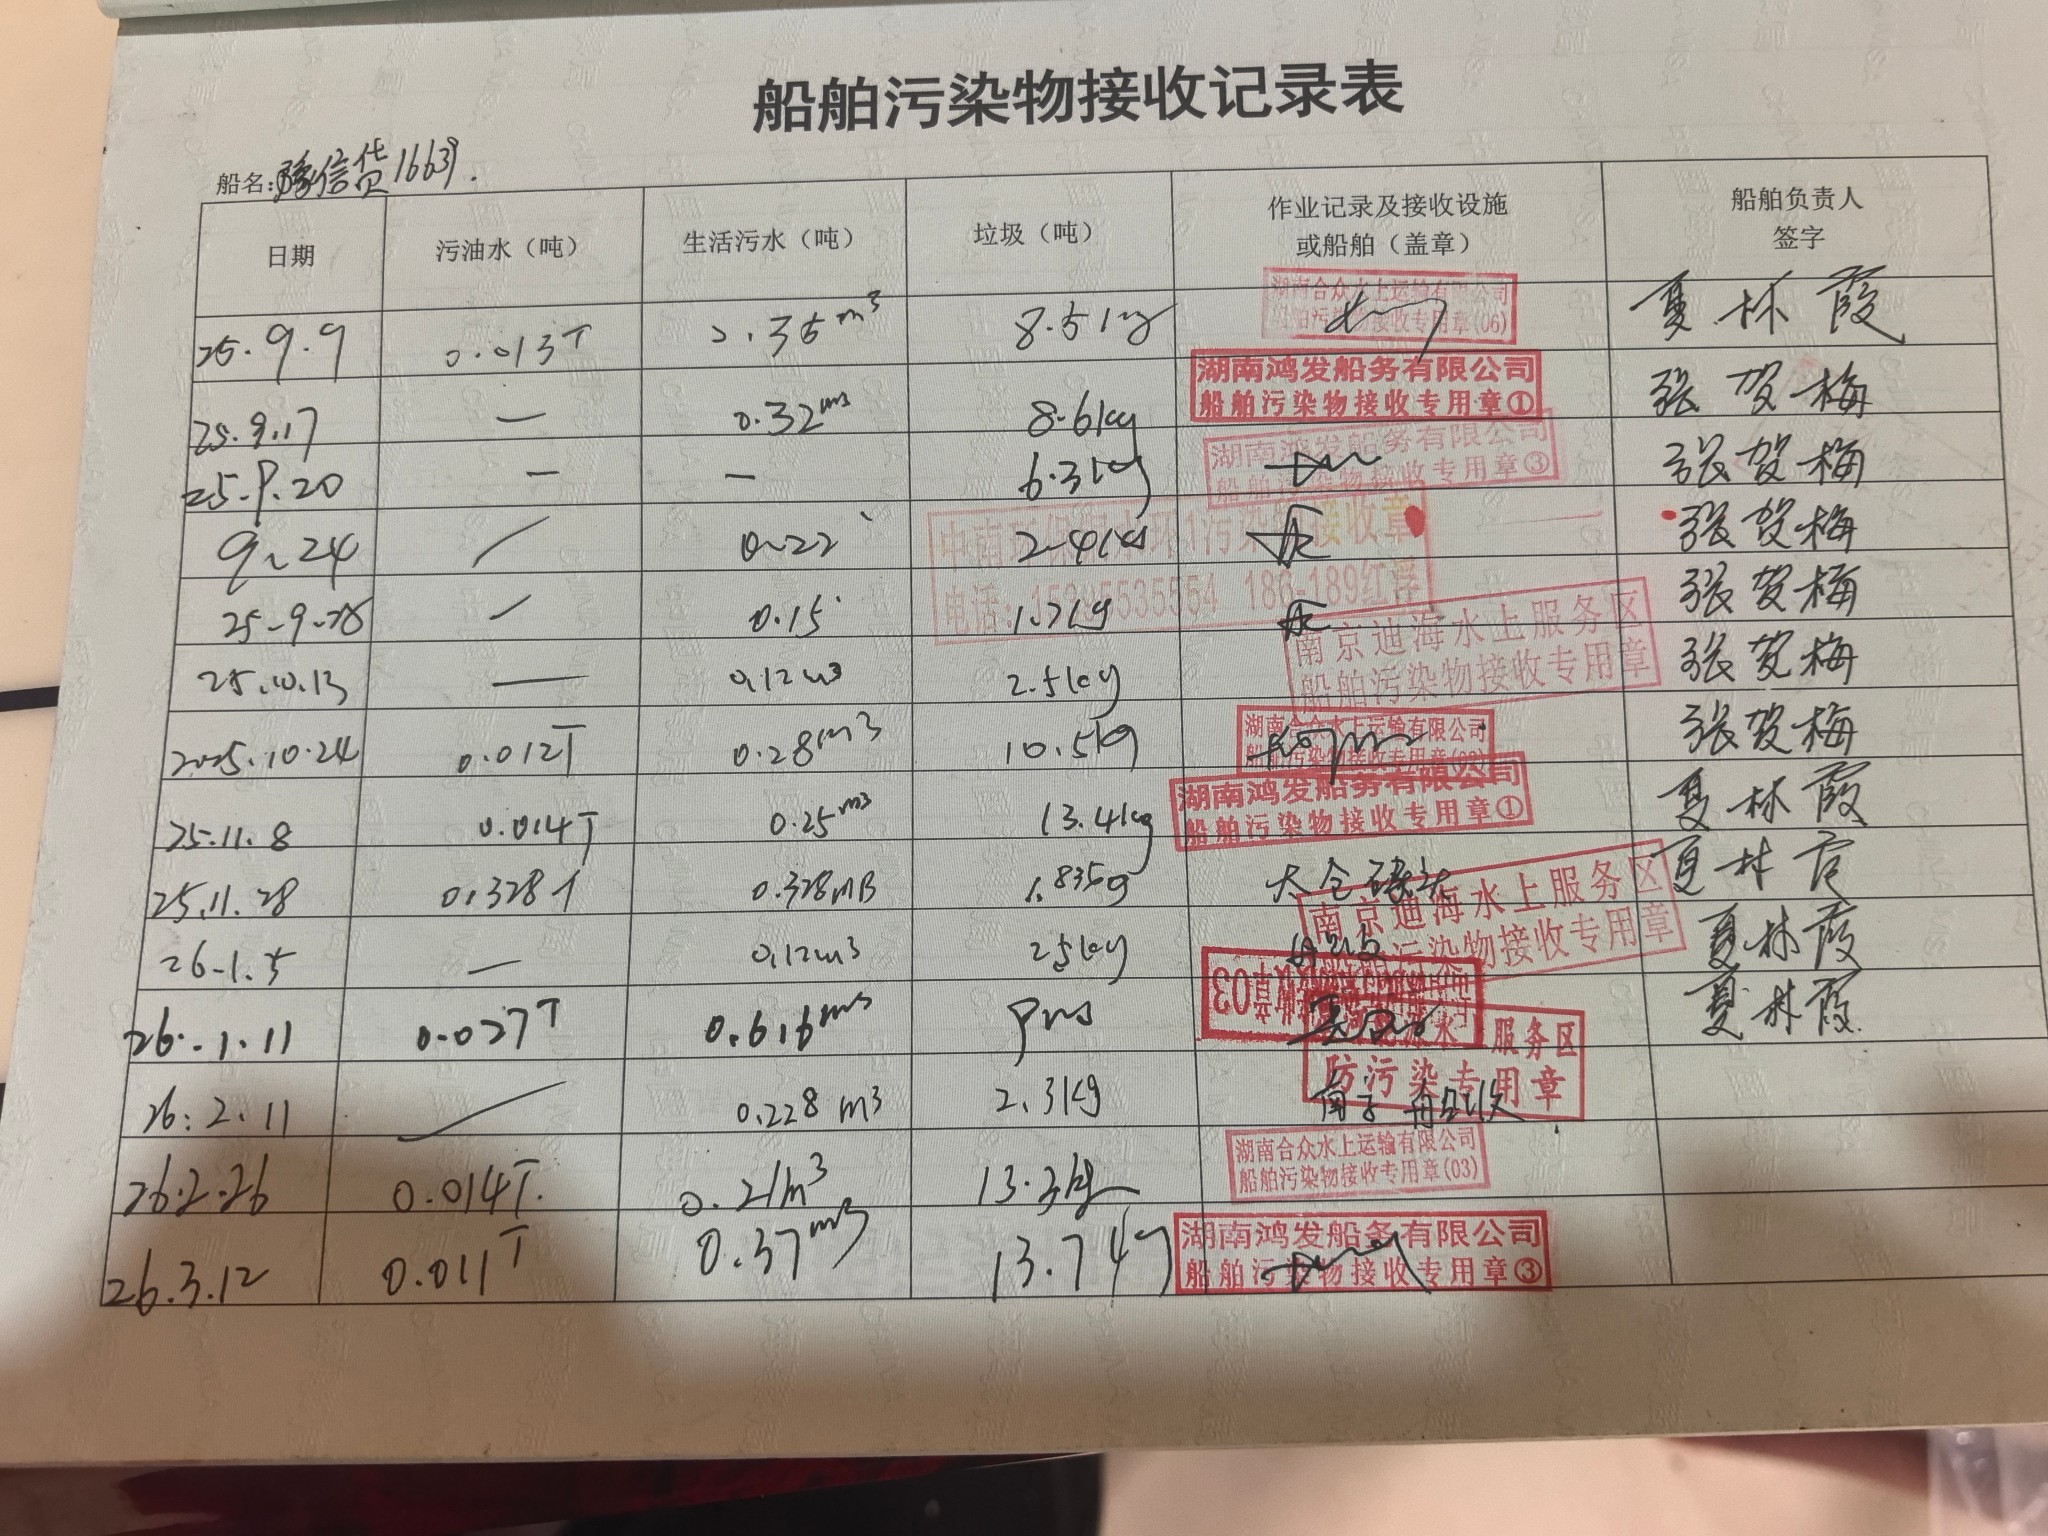 船舶污染物接收记录表
船名:豫信货16639.
日期 污油水（吨） 生活污水（吨） 垃圾（吨） 作业记录及接收设施或船舶（盖章） 船舶负责人签字
25.9.9 0.013T 0.35m³ 8.5kg 湖南合众水上运输有限公司 船舶污染物接收专用章(06) 夏林霞
25.9.17 — 0.32m³ 8.6kg 湖南鸿发船务有限公司 船舶污染物接收专用章① 张贺梅
25.9.20 — — 6.3kg 湖南鸿发船务有限公司 船舶污染物接收专用章③ 张贺梅
9.24 / 0.22 2.4kg 张贺梅
中南环保 污染物接收章
电话: 5535554 186-189红浮
25-9-28 / 0.15 1.7kg 张贺梅
25.10.13 — 0.12m3 2.5kg 南京迪海水上服务区 船舶污染物接收专用章 张贺梅
2025.10.24 0.012T 0.28m3 10.5kg 湖南合众水上运输有限公司 船舶污染物接收专用章 张贺梅
25.11.8 0.014T 0.25m3 13.4kg 湖南鸿发船务有限公司 船舶污染物接收专用章① 夏林霞
25.11.28 0.328T 0.328m3 太仓 夏林霞
26.1.5 — 0.12m3 2.5kg 南京迪海水上服务区 船舶污染物接收专用章 夏林霞
26.1.11 0.027T 0.616m3 03 夏林霞
26.2.11 / 0.228m3 2.3kg 水上服务区 防污染专用章
26.2.26 0.014T. 0.21m3 13.3kg 湖南合众水上运输有限公司 船舶污染物接收专用章(03)
26.3.12 0.011T 0.37m3 13.7kg 湖南鸿发船务有限公司 船舶污染物接收专用章③